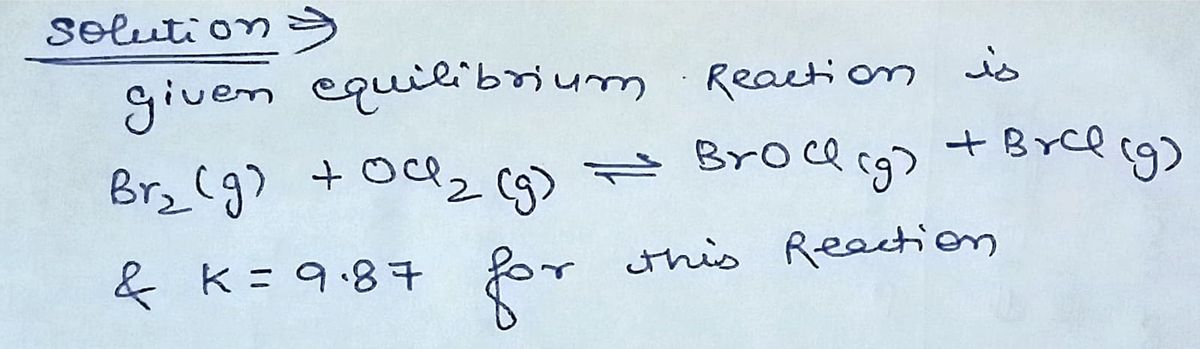 Solution ⇒
given equilibrium Reaction is
Br₂ (g) + OCl₂ (g) ⇌ BrOCl (g) + BrCl (g)
& K = 9.87 for this Reaction